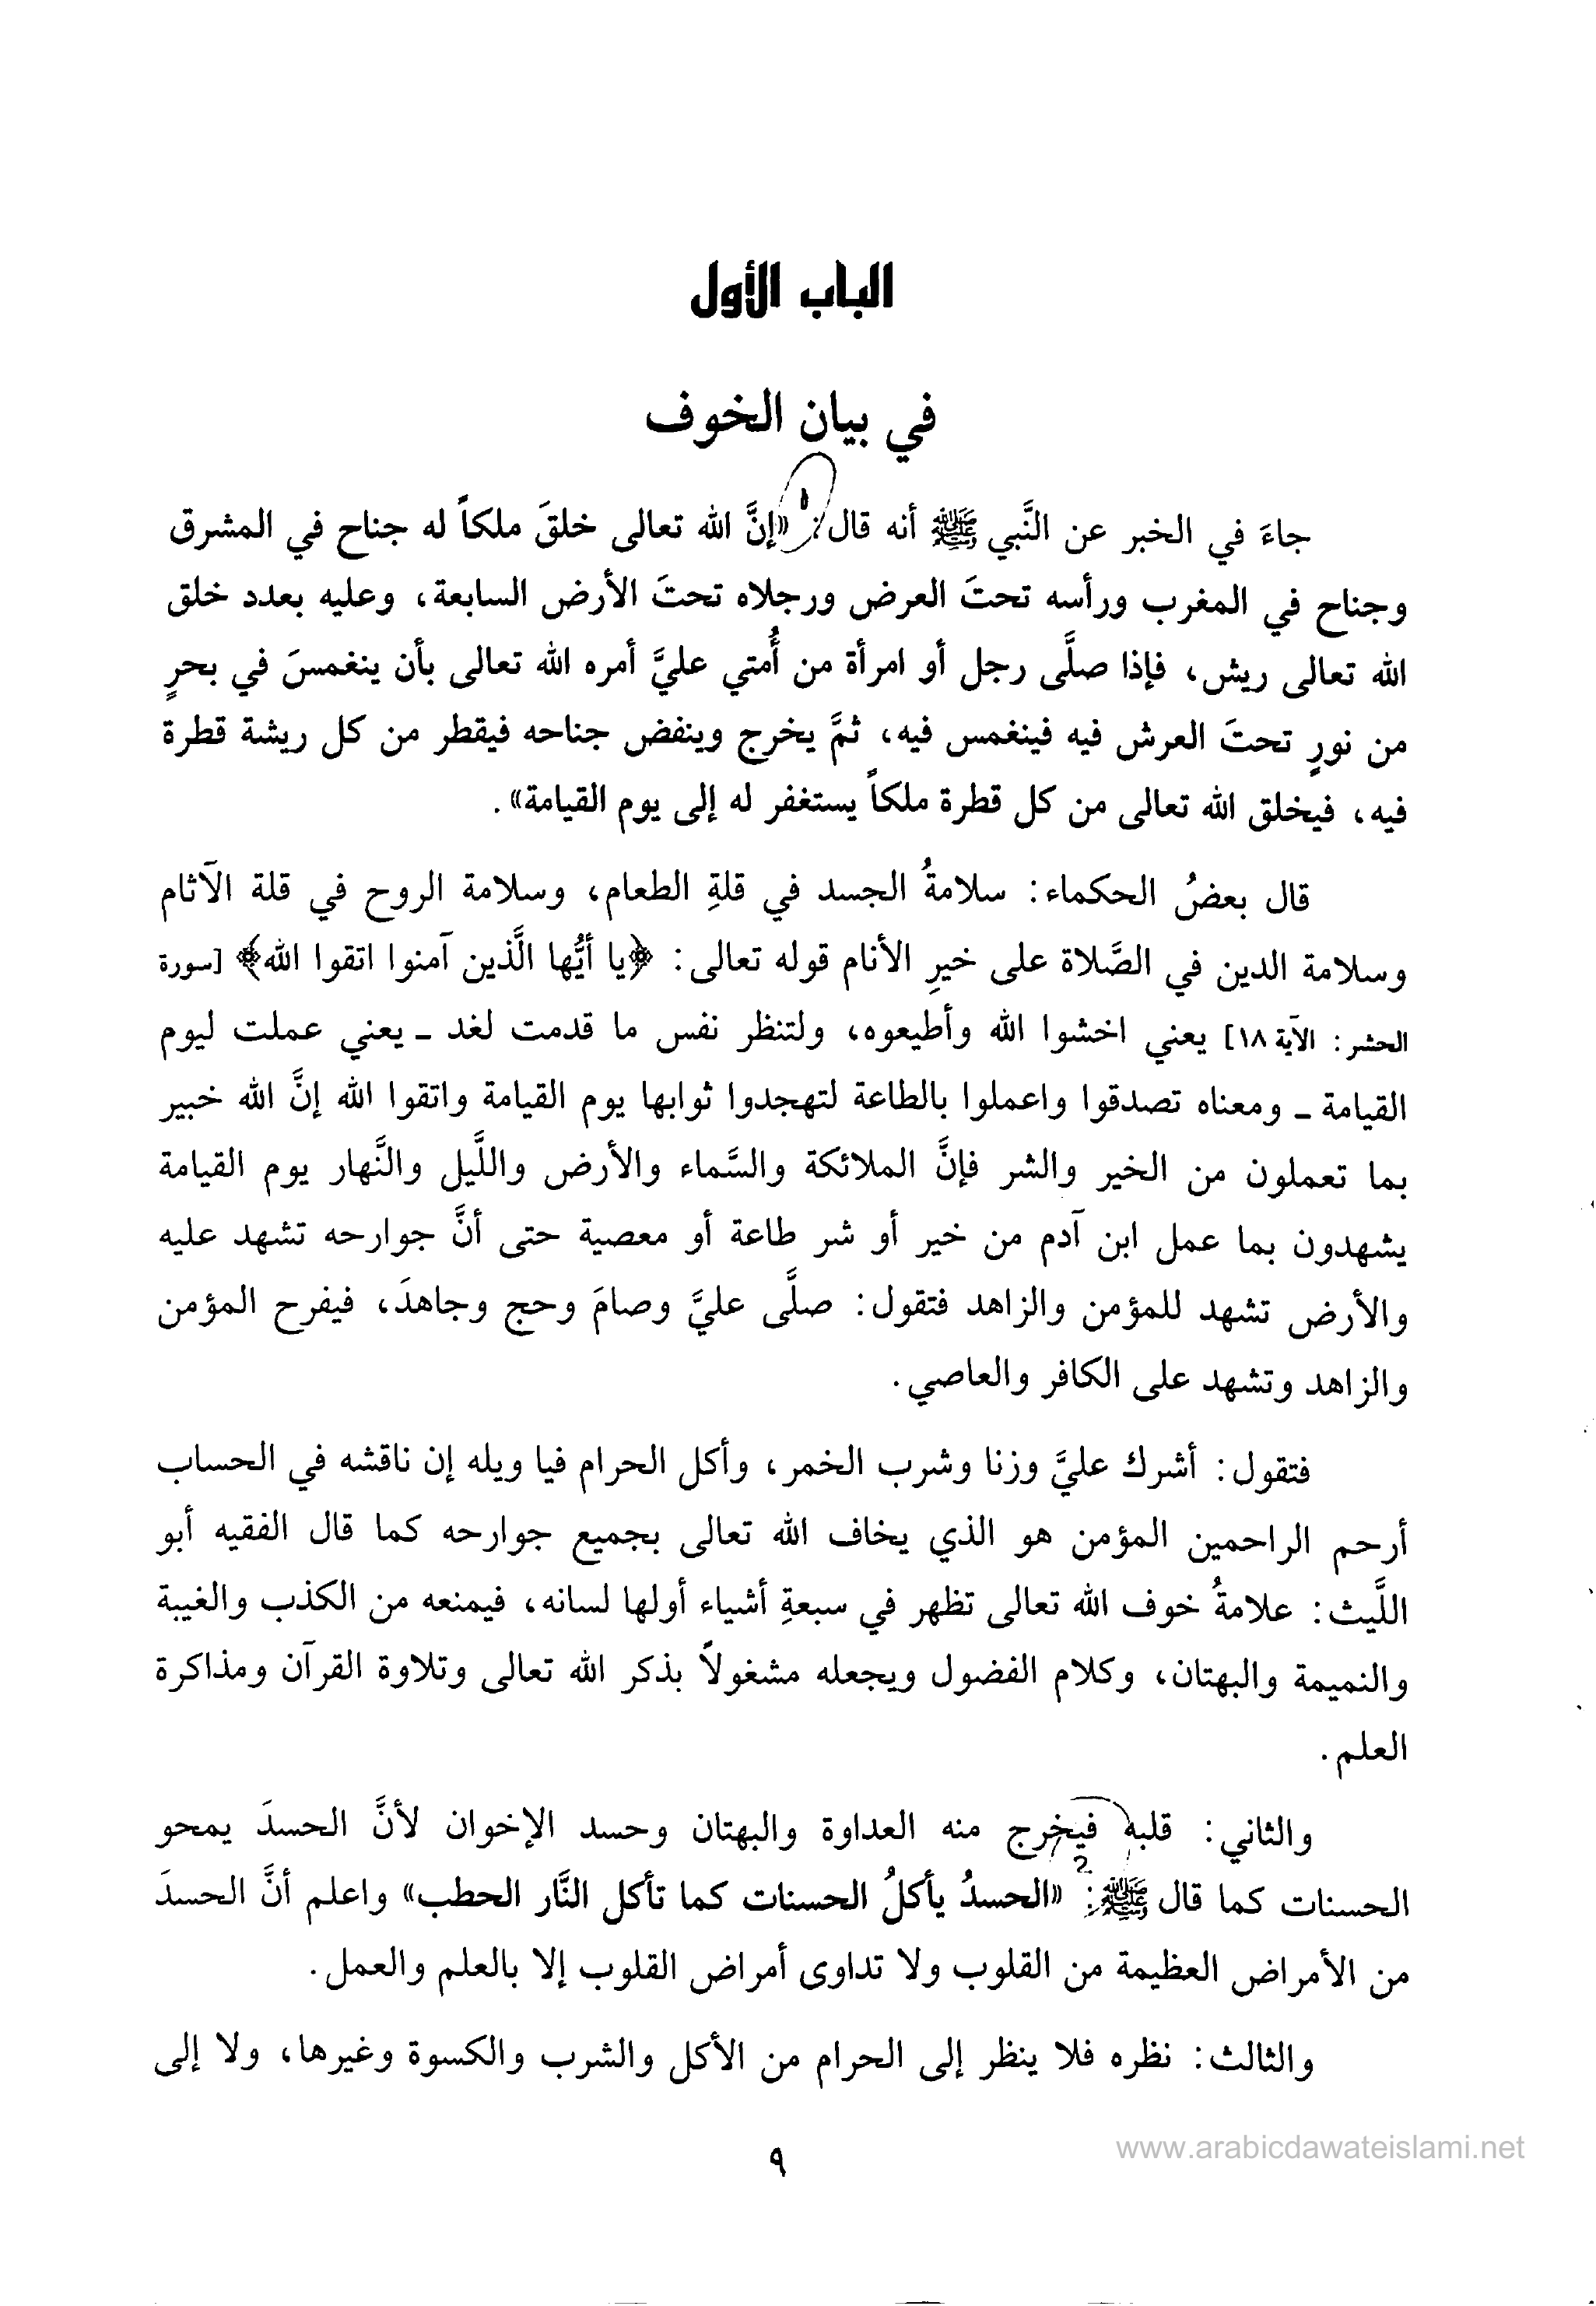 الباب الأول
في بيان الخوف
١
جاءَ في الخبر عن النَّبي ﷺ أنه قال: «إنَّ الله تعالى خلقَ ملكاً له جناح في المشرق
وجناح في المغرب ورأسه تحتَ العرض ورجلاه تحتَ الأرض السابعة، وعليه بعدد خلق
الله تعالى ريش، فإذا صلَّى رجل أو امرأة من أُمتي عليَّ أمره الله تعالى بأن ينغمسَ في بحرٍ
من نورٍ تحتَ العرش فيه فينغمس فيه، ثمَّ يخرج وينفض جناحه فيقطر من كل ريشة قطرة
فيه، فيخلق الله تعالى من كل قطرة ملكاً يستغفر له إلى يوم القيامة».
قال بعضُ الحكماء: سلامةُ الجسد في قلةِ الطعام، وسلامة الروح في قلة الآثام
وسلامة الدين في الصَّلاة على خيرِ الأنام قوله تعالى: ﴿يا أيُّها الَّذين آمنوا اتقوا الله﴾ [سورة
الحشر: الآية ١٨] يعني اخشوا الله وأطيعوه، ولتنظر نفس ما قدمت لغد ـ يعني عملت ليوم
القيامة ـ ومعناه تصدقوا واعملوا بالطاعة لتهجدوا ثوابها يوم القيامة واتقوا الله إنَّ الله خبير
بما تعملون من الخير والشر فإنَّ الملائكة والسَّماء والأرض واللَّيل والنَّهار يوم القيامة
يشهدون بما عمل ابن آدم من خير أو شر طاعة أو معصية حتى أنَّ جوارحه تشهد عليه
والأرض تشهد للمؤمن والزاهد فتقول: صلَّى عليَّ وصامَ وحج وجاهدَ، فيفرح المؤمن
والزاهد وتشهد على الكافر والعاصي.
فتقول: أشرك عليَّ وزنا وشرب الخمر، وأكل الحرام فيا ويله إن ناقشه في الحساب
أرحم الراحمين المؤمن هو الذي يخاف الله تعالى بجميع جوارحه كما قال الفقيه أبو
اللَّيث: علامةُ خوف الله تعالى تظهر في سبعةِ أشياء أولها لسانه، فيمنعه من الكذب والغيبة
والنميمة والبهتان، وكلام الفضول ويجعله مشغولاً بذكر الله تعالى وتلاوة القرآن ومذاكرة
العلم.
والثاني: قلبه فيخرج منه العداوة والبهتان وحسد الإخوان لأنَّ الحسدَ يمحو
2
الحسنات كما قال ﷺ: «الحسدُ يأكلُ الحسنات كما تأكل النَّار الحطب» واعلم أنَّ الحسدَ
من الأمراض العظيمة من القلوب ولا تداوى أمراض القلوب إلا بالعلم والعمل.
والثالث: نظره فلا ينظر إلى الحرام من الأكل والشرب والكسوة وغيرها، ولا إلى
٩
www.arabicdawateislami.net